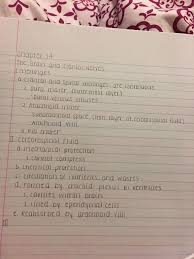 Chapter 14
The Brain and Cranial Nerves
I. Meninges
a. cranial and spinal meninges are continuous
i. dura mater (outermost layer)
1. dural venous sinuses
ii. arachnoid mater
1. subarachnoid space
arachnoid villi
iii. pia mater
II. Cerebrospinal fluid
a. mechanical protection
i. cannot compress
b. chemical protection
c. circulation of nutrients and wastes
d. formed by choroid plexus in ventricles
i. cavities within brain
ii. lined by ependymal cells
e. reabsorbed by arachnoid villi
III